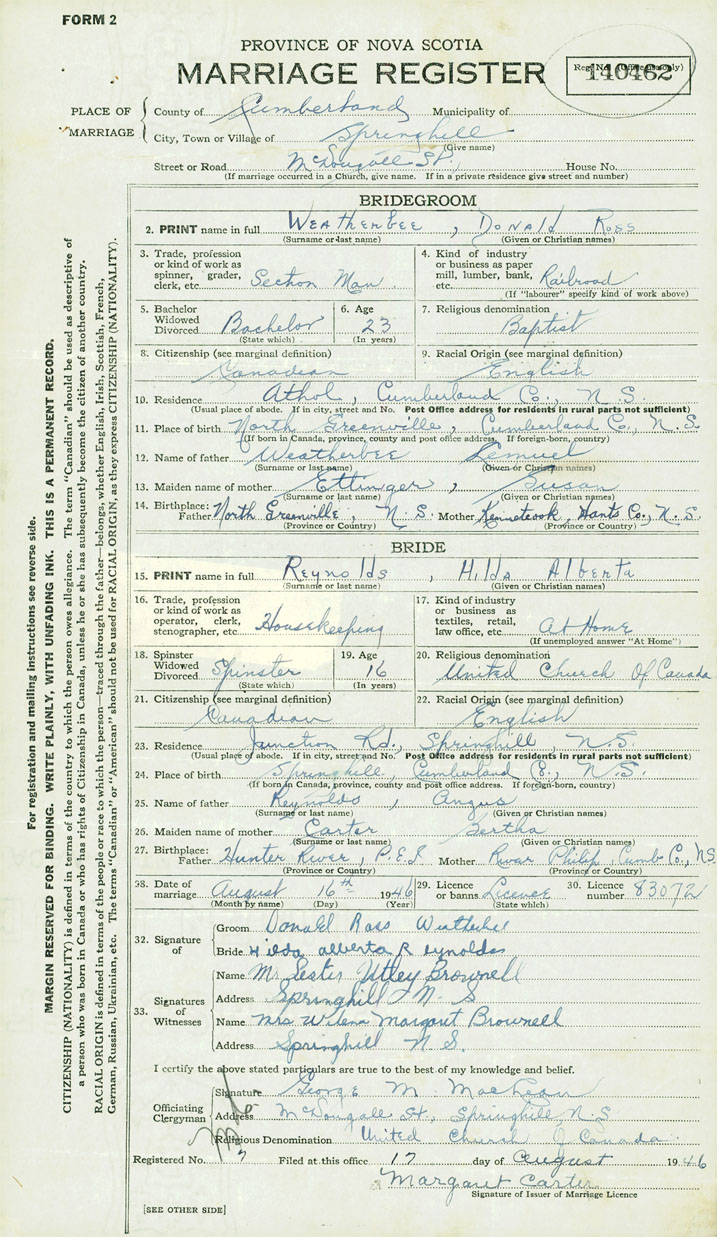 FORM 2
PROVINCE OF NOVA SCOTIA
MARRIAGE REGISTER
Reg. No. (Office use only)
140462
PLACE OF MARRIAGE
County of Cumberland Municipality of
City, Town or Village of Springhill
(Give name)
Street or Road McDougall St. House No.
(If marriage occurred in a Church, give name. If in a private residence give street and number)
BRIDEGROOM
2. PRINT name in full WEATHERBEE, DONALD ROSS
(Surname or last name) (Given or Christian names)
3. Trade, profession or kind of work as spinner, grader, clerk, etc. Section Man
4. Kind of industry or business as paper mill, lumber, bank, etc. Railroad
(If "labourer" specify kind of work above)
5. Bachelor Widowed Divorced Bachelor
(State which)
6. Age 23
(In years)
7. Religious denomination
Baptist
8. Citizenship (see marginal definition)
Canadian
9. Racial Origin (see marginal definition)
English
10. Residence Athol, Cumberland Co., N.S.
(Usual place of abode. If in city, street and No. Post Office address for residents in rural parts not sufficient)
11. Place of birth North Greenville, Cumberland Co., N.S.
(If born in Canada, province, county and post office address. If foreign-born, country)
12. Name of father Weatherbee Lemuel
(Surname or last name) (Given or Christian names)
13. Maiden name of mother Ettinger, Susan
(Surname or last name) (Given or Christian names)
14. Birthplace: Father North Greenville, N.S. Mother Kennetcook, Hants Co., N.S.
(Province or Country) (Province or Country)
BRIDE
15. PRINT name in full Reynolds, Hilda Alberta
(Surname or last name) (Given or Christian names)
16. Trade, profession or kind of work as operator, clerk, stenographer, etc. Housekeeping
17. Kind of industry or business as textiles, retail, law office, etc. At Home
(If unemployed answer "At Home")
18. Spinster Widowed Divorced Spinster
(State which)
19. Age 16
(In years)
20. Religious denomination
United Church Of Canada
21. Citizenship (see marginal definition)
Canadian
22. Racial Origin (see marginal definition)
English
23. Residence Junction Rd., Springhill, N.S.
(Usual place of abode. If in city, street and No. Post Office address for residents in rural parts not sufficient)
24. Place of birth Springhill, Cumberland Co., N.S.
(If born in Canada, province, county and post office address. If foreign-born, country)
25. Name of father Reynolds, Angus
(Surname or last name) (Given or Christian names)
26. Maiden name of mother Carter Bertha
(Surname or last name) (Given or Christian names)
27. Birthplace: Father Hunter River, P.E.I Mother River Philip, Cumb Co., N.S.
(Province or Country) (Province or Country)
28. Date of marriage August 16th 1946
(Month by name) (Day) (Year)
29. Licence or banns Licence
(State which)
30. Licence number 83072
32. Signature of
Groom Donald Ross Weatherbee
Bride Hilda alberta Reynolds
33. Signatures of Witnesses
Name Mr Lester Utley Brownell
Address Springhill N S
Name Mrs Wilena Margaret Brownell
Address Springhill N.S.
I certify the above stated particulars are true to the best of my knowledge and belief.
Officiating Clergyman
Signature George M. MacLean
Address McDougall St., Springhill N.S
Religious Denomination United Church of Canada
Registered No. 7 Filed at this office 17 day of August 1946
Margaret Carter
Signature of Issuer of Marriage Licence
[SEE OTHER SIDE]
For registration and mailing instructions see reverse side.
MARGIN RESERVED FOR BINDING. WRITE PLAINLY, WITH UNFADING INK. THIS IS A PERMANENT RECORD.
CITIZENSHIP (NATIONALITY) is defined in terms of the country to which the person owes allegiance. The term "Canadian" should be used as descriptive of
a person who was born in Canada or who has rights of Citizenship in Canada, unless he or she has subsequently become the citizen of another country.
RACIAL ORIGIN is defined in terms of the people or race to which the person—traced through the father—belongs, whether English, Irish, Scottish, French,
German, Russian, Ukrainian, etc. The terms "Canadian" or "American" should not be used for RACIAL ORIGIN, as they express CITIZENSHIP (NATIONALITY).